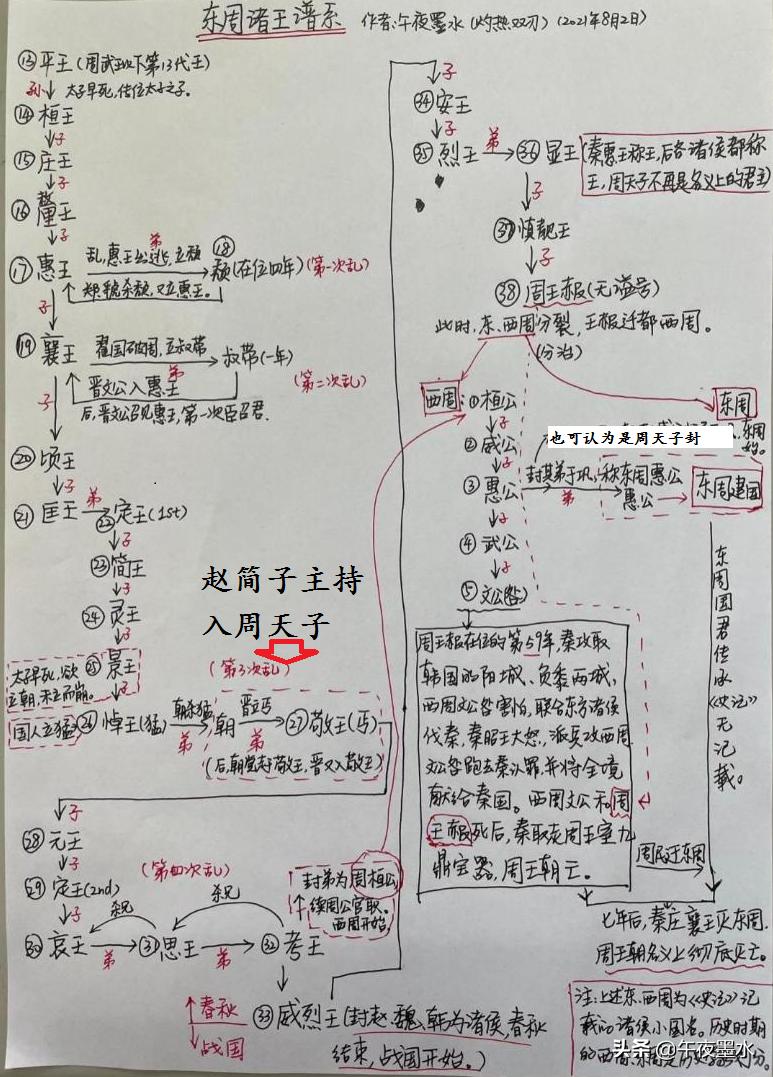 东周诸王谱系 作者:午夜墨水(灼热双刃) (2021年8月2日)
⑬平王(周武王以下第13代王)
孙 太子早死,传位太子之子。
⑭桓王
子
⑮庄王
子
⑯釐王
子
⑰惠王 乱,惠王出逃,立颓 弟 ⑱颓(在位四年)(第一次乱)
郑、虢杀颓,又立惠王。
子
⑲襄王 翟国破周,立叔带 弟 叔带(一年)
(第二次乱)
晋文公入惠王
后,晋文公召见惠王,第一次臣召君。
子
⑳顷王
子
㉑匡王 弟 ㉒定王(1st)
子
㉓简王
子
㉔灵王
子
太子早死,欲立朝,未立而崩。 ㉕景王
子
赵简子主持
入周天子
(第三次乱)
国人立猛 ㉖悼王(猛) 朝杀猛 弟 朝 晋立丐 弟 ㉗敬王(丐)
(后,朝党封敬王,晋又入敬王)
子
㉘元王
子
㉙定王(2nd) (第四次乱)
子 杀兄 杀兄
㉚哀王 弟 ㉛思王 弟 ㉜考王
封弟为周桓公
续周公官职。
西周开始。
春秋
战国
㉝威烈王(封赵、魏、韩为诸侯,春秋
结束,战国开始。)
子
㉞安王
子
㉟烈王 弟 ㊱显王(秦惠王称王,后各诸侯都称
王,周天子不再是名义上的君主)
子
㊲慎靓王
子
㊳周王赧(无谥号)
此时,东、西周分裂,王赧迁都西周。
(分治)
西周:①桓公
东周
子
也可认为是周天子封
东周
始。
②威公
子
③惠公 封其弟于巩 弟 称东周惠公
惠公 东周建国
子
④武公
子
⑤文公(咎)
东周国君传承《史记》无记载。
周王赧在位的第59年,秦攻取
韩国的阳城、负黍两城,
西周文公咎害怕,联合东方诸侯
伐秦,秦昭王大怒,派兵攻西周
文公咎跑去秦认罪,并将全境
献给秦国。西周文公和周
王赧死后,秦取走周王室九
鼎宝器,周王朝亡。
周民迁东周
七年后,秦庄襄王灭东周.
周王朝名义上彻底灭亡。
注:上述东、西周为《史记》记
载的诸侯小国名。历史时期
的西周、东周是
头条@午夜墨水